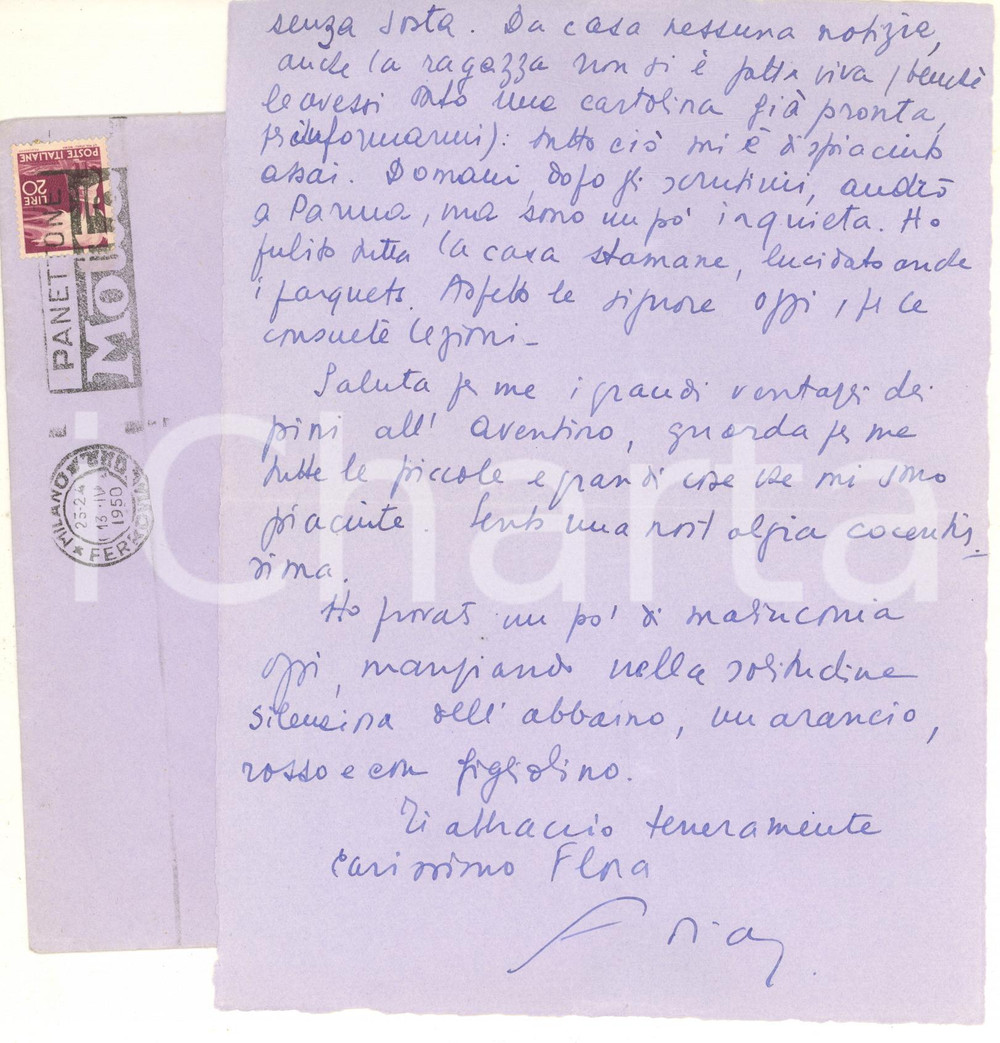 senza sosta. Da casa nessuna notizia,
anche la ragazza non si è fatta viva (benchè
le avessi dato una cartolina già pronta,
per informarmi): tutto ciò mi è dispiaciuto
assai. Domani, dopo gli scrutinii, andrò
a Parma, ma sono un po' inquieta. Ho
pulito tutta la casa stamane, lucidato anche
i parquets. Aspetto le signore oggi, per le
consuete lezioni -
Saluta per me i grandi ventagli dei
pini all' Aventino, guarda per me
tutte le piccole e grandi cose che mi sono
piaciute. Sento una nostalgia cocentis
sima.
Ho provato un po' di malinconia
oggi, mangiando nella solitudine
silenziosa dell' abbaino, un arancio,
rosso e con figliolino.
Ti abbraccio teneramente
carissimo Flora
POSTE ITALIANE
LIRE 20
PANETTONE
MOTTA
MILANO FERROVIA
23-24
13 · IV
1950
iCharta